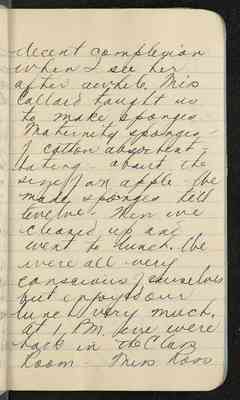 decent complexion
when I see her
after awhile. Miss
Callard taught us
to make sponges
Maternity sponges -
of cotton absorbent -
bating - about the
size of an apple We
made sponges till
twelve. Then we
cleaned up and
went to lunch. We
were all very
conscious of ourselves
but enjoyed our
lunch very much.
At 1 P.M. we were
back in the Class
Room - Miss Ross